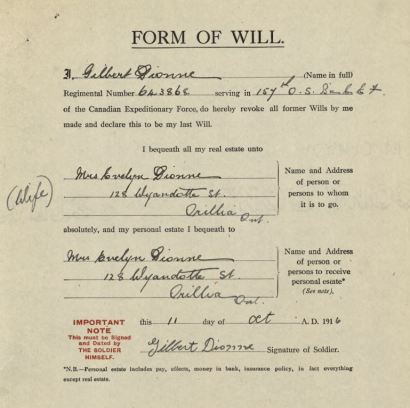 FORM OF WILL.
I, Gilbert Dionne (Name in full)
Regimental Number 643868 serving in 157th O.S. Batt
of the Canadian Expeditionary Force, do hereby revoke all former Wills by me
made and declare this to be my last Will.
I bequeath all my real estate unto
(Wife)
Mrs Evelyn Dionne
128 Wyandotte St.
Orillia Ont.
Name and Address
of person or
persons to whom
it is to go.
absolutely, and my personal estate I bequeath to
Mrs Evelyn Dionne
128 Wyandotte St.
Orillia Ont.
Name and Address
of person or
persons to receive
personal estate*
(See note).
IMPORTANT
NOTE
This must be Signed
and Dated by
THE SOLDIER
HIMSELF.
this 11 day of Oct A.D. 1916
Gilbert Dionne Signature of Soldier.
*N.B.—Personal estate includes pay, effects, money in bank, insurance policy, in fact everything
except real estate.